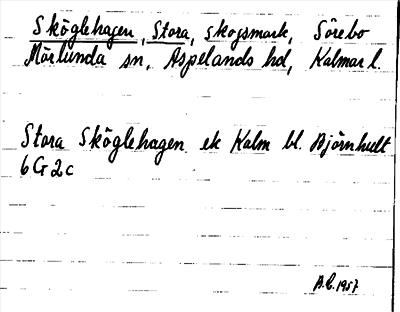 Sköglehagen, Stora, skogsmark, Sörebo
Mörlunda sn, Aspelands hd, Kalmar l.
Stora Sköglehagen ek Kalm bl. Björnhult
6G2c
B.L. 1957